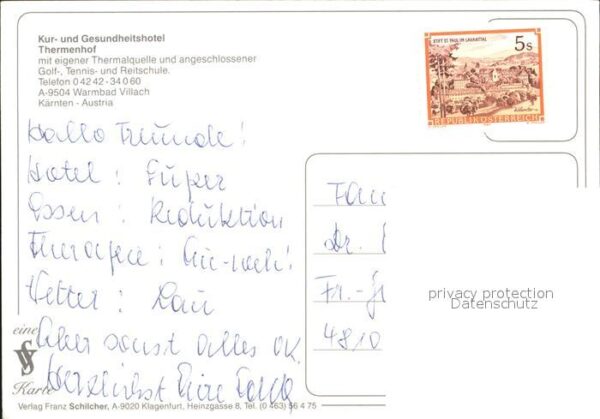 Kur- und Gesundheitshotel
Thermenhof
mit eigener Thermalquelle und angeschlossener
Golf-, Tennis- und Reitschule.
Telefon 0 42 42 - 34 0 60
A-9504 Warmbad Villach
Kärnten - Austria
STIFT ST. PAUL IM LAVANTTAL
5 S
REPUBLIK ÖSTERREICH
Hallo Freunde!
Hotel: Super
Essen: Reduktion
Therapie: Au-weh!
Wetter: Lau
Aber sonst alles OK
Herzlichst Eure
Dr.
Fr.-
4810
privacy protection
Datenschutz
eine
Karte
Verlag Franz Schilcher, A-9020 Klagenfurt, Heinzgasse 8, Tel. (0 463) 56 4 75